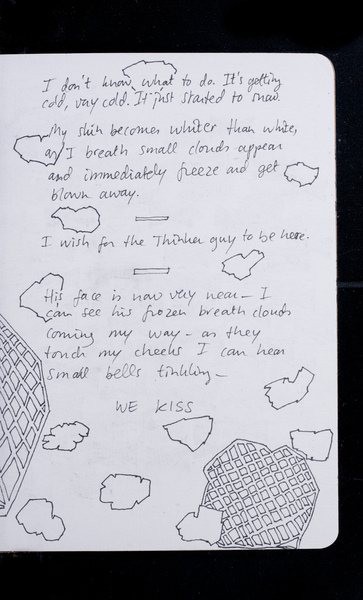 I don't know what to do. It's getting
cold, very cold. It just started to snow.
My skin becomes whiter than white,
as I breath small clouds appear
and immediately freeze and get
blown away.
I wish for the Thinker guy to be here.
His face is now very near – I
can see his frozen breath clouds
coming my way – as they
touch my cheeks I can hear
small bells tinkling –
WE KISS